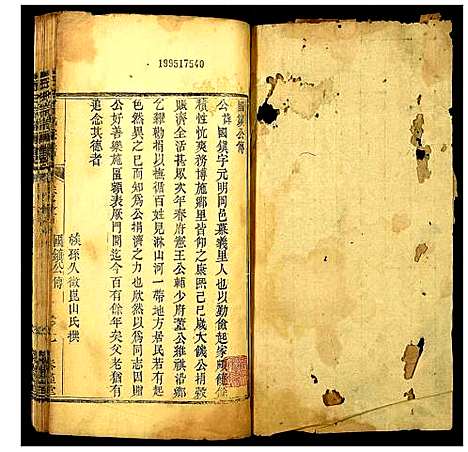 199517540
國鎮公傳
公諱國鎮字元明同邑葉義里人也以勤儉起家頗饒餘
積性忼爽務博施鄉里皆仰之康熙己巳歲大饑公捐穀
賑濟全活甚眾次年春府憲王公輔少府董公維祺沿鄉
乞糴勸捐以撫循百姓見淋山河一帶地方居民若有起
色然異之已而知為公捐濟之力也欣然以為同志四贈
公好善樂施匾額表厥門閭迄今百有餘年矣父老猶有
追念其德者
孫久徵崑山氏撰
國鎮公傳